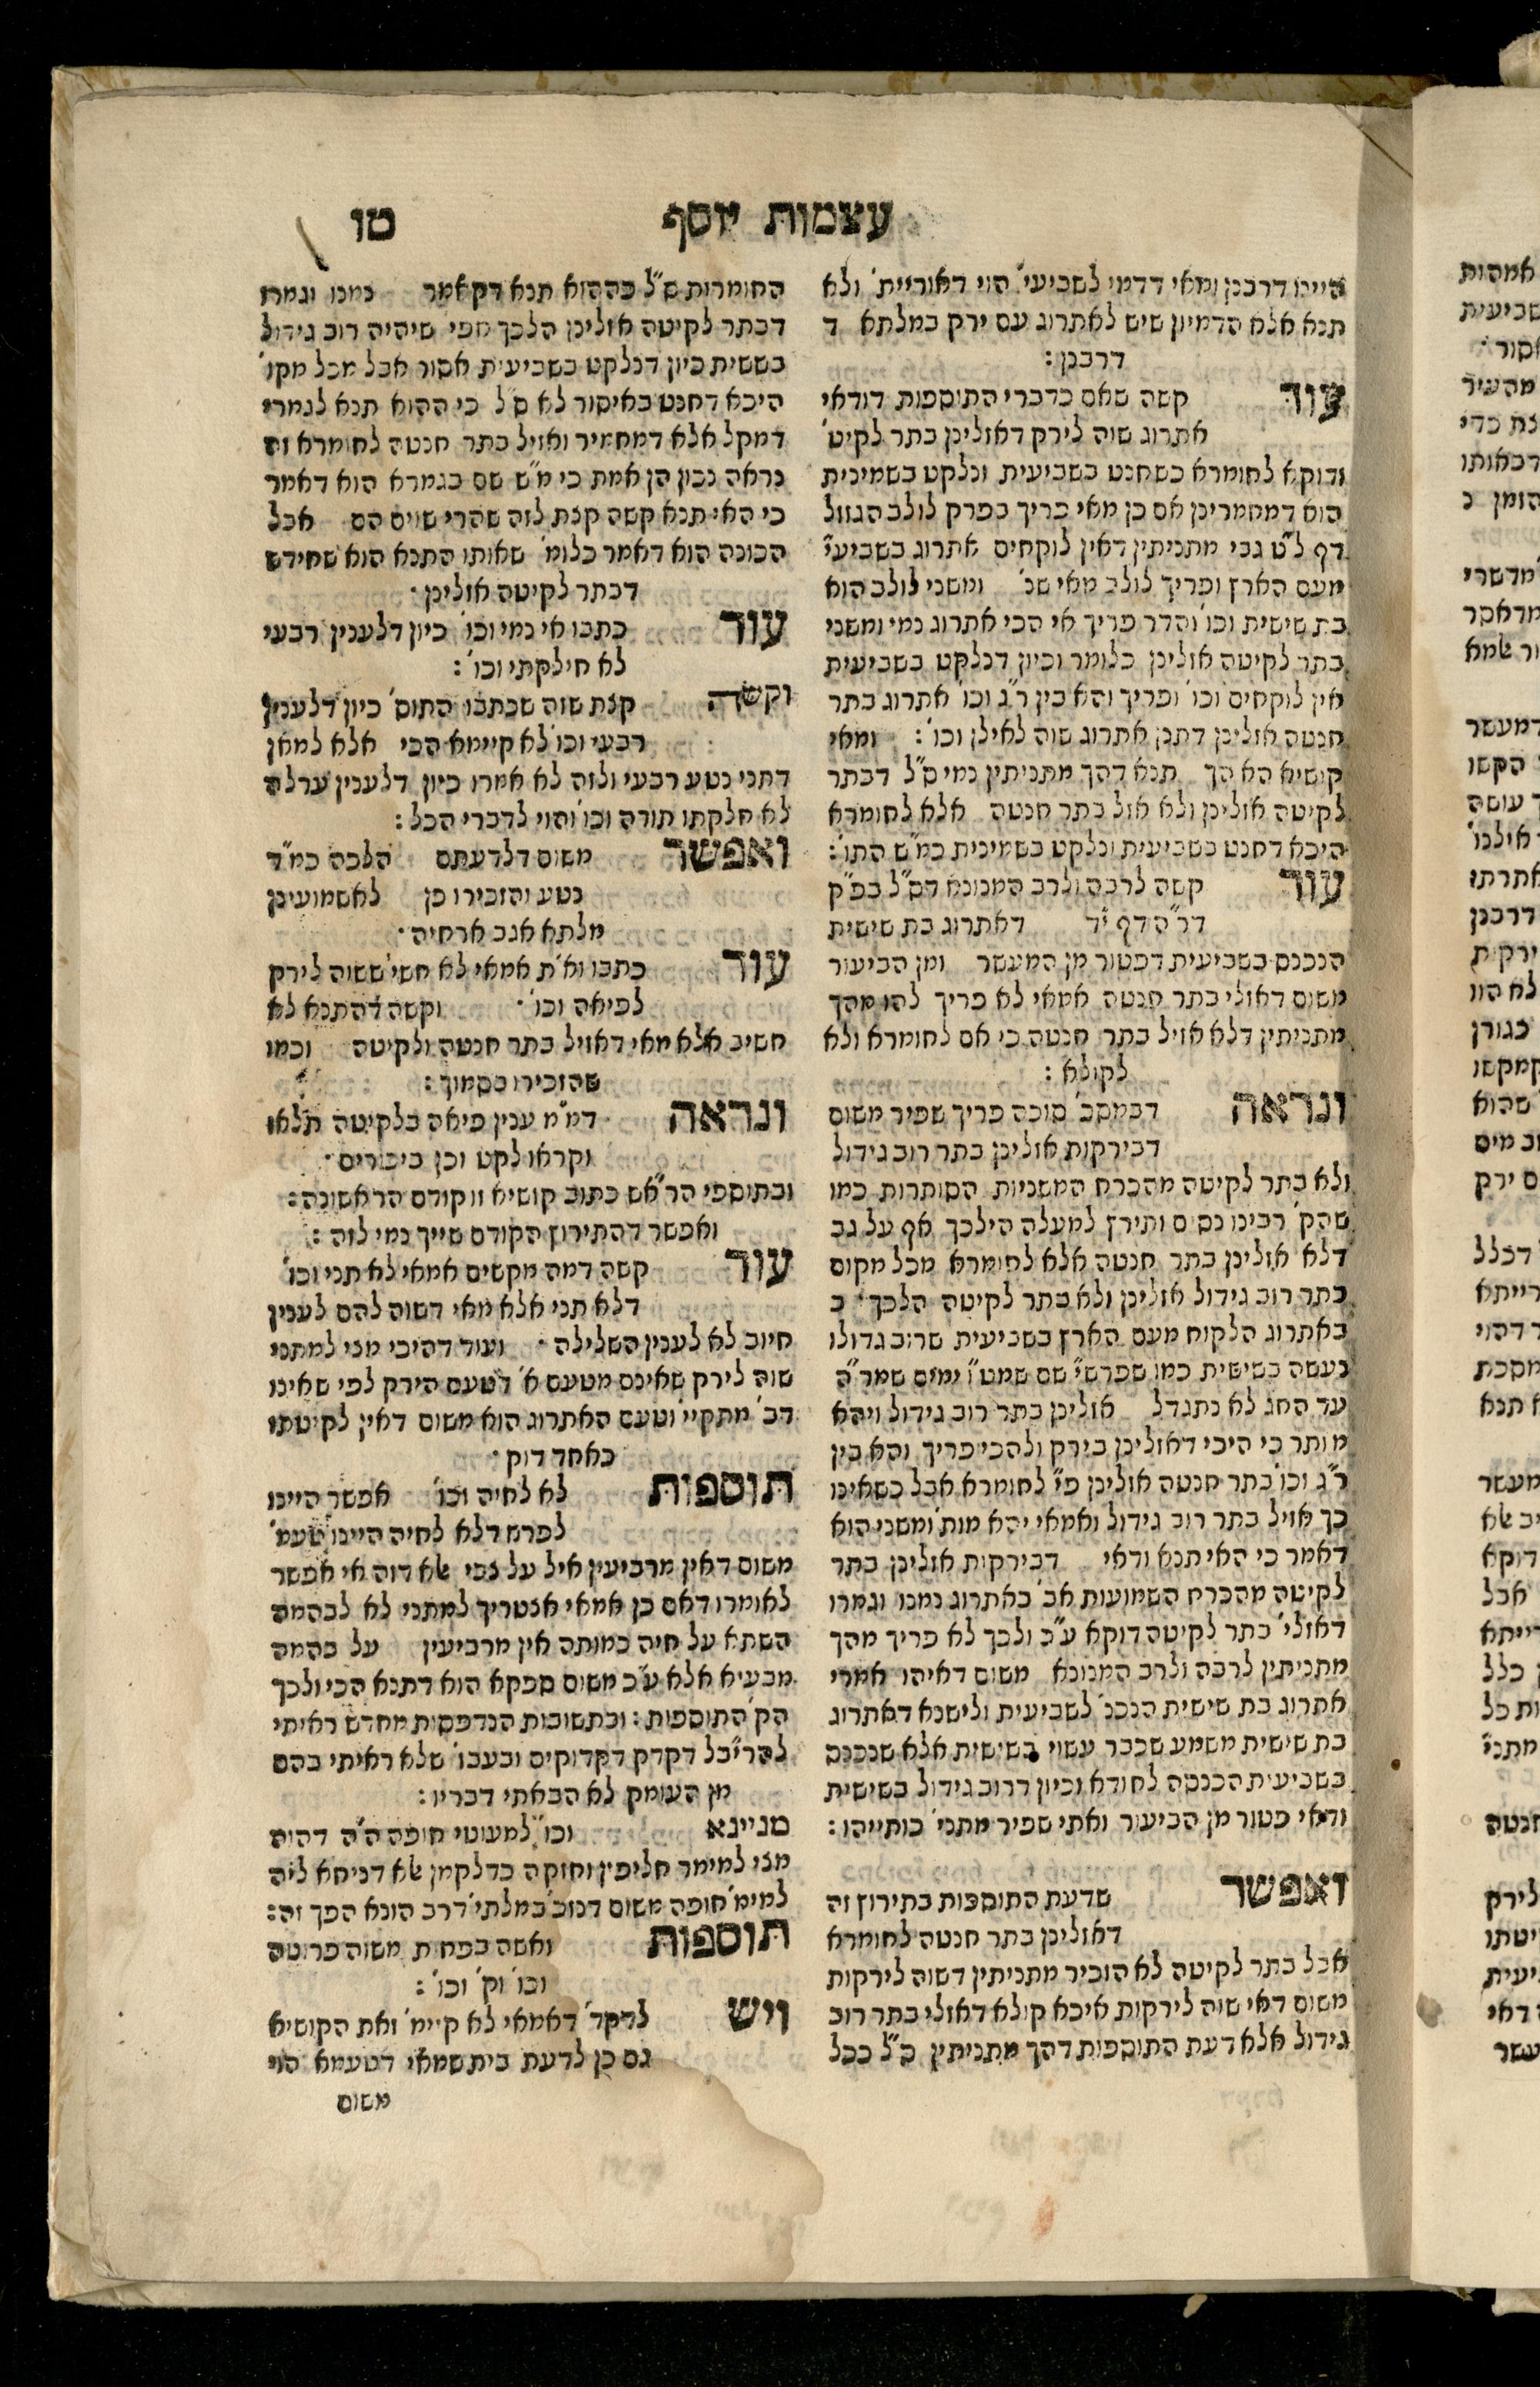 עצמות יוסף
טו
היינו דרבנן ומאי דדמי לשביעי׳ הוי דאוריית׳ ולא
תנא אלא הדמיון שיש לאתרוג עם ירק במלתא ד
דרבנן :
עוד קשה שאם כדברי התוספות דודאי
אתרוג שוה לירק דאזלינן בתר לקיט׳
ודוקא לחומרא כשחנט בשביעית ונלקט בשמינית
הוא דמחמרינן אם כן מאי פריך בפרק לולב הגזול
דף ל״ט גבי מתניתין דאין לוקחים אתרוג בשביעי׳
מעם הארץ ופריך לולב מאי שנ׳ ומשני לולב הוא
בת שישית וכו׳ והדר פריך אי הכי אתרוג נמי ומשני
בתר לקיטה אזלינן כלומר וכיון דנלקט בשביעית
אין לוקחים וכו׳ ופריך והא בין ר״ג וכו׳ אתרוג בתר
חנטה אזלינן דתנן אתרוג שוה לאילן וכו׳ : ומאי
קושיא הא הך תנא דהך מתניתין נמי ס״ל דבתר
לקיטה אזלינן ולא אזל בתר חנטה אלא לחומרא
היכא דחנט בשביעית ונלקט בשמינית כמ״ש התו׳ :
עוד קשה לרבה ולרב המנונא דס״ל בפ״ק
דר״ה דף י״ד דאתרוג בת שישית
הנכנס בשביעית דפטור מן המעשר ומן הביעור
משום דאזלי בתר חנטה אמאי לא פריך להו מהך
מתניתין דלא אזיל בתר חנטה כי אם לחומרא ולא
לקולא :
ונראה דבמסכ׳ סוכה פריך שפיר משום
דבירקות אזלינן בתר רוב גידול
ולא בתר לקיטה מהכרח המשניות הסותרות כמו
שהק׳ רבינו נסים ותירץ למעלה הילכך אף על גב
דלא אזלינן בתר חנטה אלא לחומרא מכל מקום
בתר רוב גידול אזלינן ולא בתר לקיטה הלכך ב
באתרוג הלקוח מעם הארץ בשביעית שרוב גדולו
נעשה בשישית כמו שפרש״י שם שמט״ו ימים שמר״ה
עד החג לא נתגדל אזלינן בתר רוב גידול ויהא
מותר כי היכי דאזלינן בירק ולהכי פריך והא בין
ר״ג וכו׳ בתר חנטה אזלינן פי׳ לחומרא אבל כשאינו
כך אזיל בתר רוב גידול ואמאי יהא מות׳ ומשני הוא
דאמר כי האי תנא ודאי דבירקות אזלינן בתר
לקיטה מהכרח השמועות אב׳ באתרוג נמנו וגמרו
דאזלי׳ בתר לקיטה דוקא ע״כ ולכך לא פריך מהך
מתניתין לרבה ולרב המנונא משום דאיהו אמרי
אתרוג בת שישית הנכנ׳ לשביעית ולישנא דאתרוג
בת שישית משמע שכבר עשוי בשישית אלא שנכנס
בשביעית הכנסה לחודא וכיון דרוב גידול בשישית
ודאי פטור מן הביעור ואתי שפיר מתני׳ כותייהו :
ואפשר שדעת התוספות בתירוץ זה
דאזלינן בתר חנטה לחומרא
אבל בתר לקיטה לא הזכיר מתניתין דשוה לירקות
משום דאי שוה לירקות איכא קולא דאזלי בתר רוב
גידול אלא דעת התוספות דהך מתניתין ס״ל ככל
החומרות ס״ל כההוא תנא דקאמר נמנו וגמרו
דבתר לקיטה אזלינן הלכך אפי׳ שיהיה רוב גידול
בששית כיון דנלקט בשביעית אסור אבל מכל מקו׳
היכא דחנט באיסור לא ס״ל כי ההוא תנא לגמרי
דמקל אלא דמחמיר ואזיל בתר חנטה לחומרא זה
נראה נכון הן אמת כי מ״ש שם בגמרא הוא דאמר
כי האי תנא קשה קצת לזה שהרי שוים הם אבל
הכונה הוא דאמר כלומ׳ שאותו התנא הוא שחידש
דבתר לקיטה אזלינן ·
עוד כתבו אי נמי וכו׳ כיון דלענין רבעי
לא חילקתי וכו׳ :
וקשה קצת שזה שכתבו התוס׳ כיון דלענין
רבעי וכו׳ לא קיימא הכי אלא למאן
דתני נטע רבעי ולזה לא אמרו כיון דלענין ערלה
לא חלקתו תורה וכו׳ והוי לדברי הכל :
ואפשר משום דלדעתם הלכה כמ״ד
נטע והזכירו כן לאשמועינן
מלתא אגב ארחיה ·
עוד כתבו וא״ת אמאי לא חשי׳ ששוה לירק
לפיאה וכו׳ · וקשה דהתנא לא
חשיב אלא מאי דאזיל בתר חנטה ולקיטה וכמו
שהזכירו בסמוך :
ונראה דמ״מ ענין פיאה בלקיטה תלאו
וקראו לקט וכן ביכורים ·
ובתוספי הר״אש כתוב קושיא זו קודם הראשונה :
ואפשר דהתירוץ הקודם שייך נמי לזה :
עוד קשה דמה מקשים אמאי לא תני וכו׳
דלא תני אלא מאי דשוה להם לענין
חיוב לא לענין השלילה · ועוד דהיכי מצי למתני
שוה לירק שאינם מטעם א׳ דטעם הירק לפי שאינו
דב׳ מתקיי׳ וטעם האתרוג הוא משום דאין לקיטתו
כאחד דוק ·
תוספות לא לחיה וכו׳ אפשר היינו
לפרש דלא לחיה היינו טעמ׳
משום דאין מרביעין איל על צבי אלא דזה אי אפשר
לאומרו דאם כן אמאי אצטריך למתני לא לבהמה
השתא על חיה כמותה אין מרביעין על בהמה
מבעיא אלא ע״כ משום ספקא הוא דתנא הכי ולכך
הק׳ התוספות : ובתשובות הנדפסות מחדש ראיתי
להריב״ל דקדק דקדוקים ובעבו׳ שלא ראיתי בהם
מן העומק לא הבאתי דבריו :
מניינא וכו׳ למעוטי חופה ה״ה דהוה
מצי למימר חליפין וחזקה כדלקמן אלא דניחא ליה
למימ׳ חופה משום דנזכ׳ במלתי׳ דרב הונא הפך זה :
תוספות ואשה בפחות משוה פרוטה
וכו׳ וק׳ וכו׳ :
ויש לדקד׳ דאמאי לא קיימ׳ זאת הקושיא
גם כן לדעת בית שמאי דטעמא הוי
משום